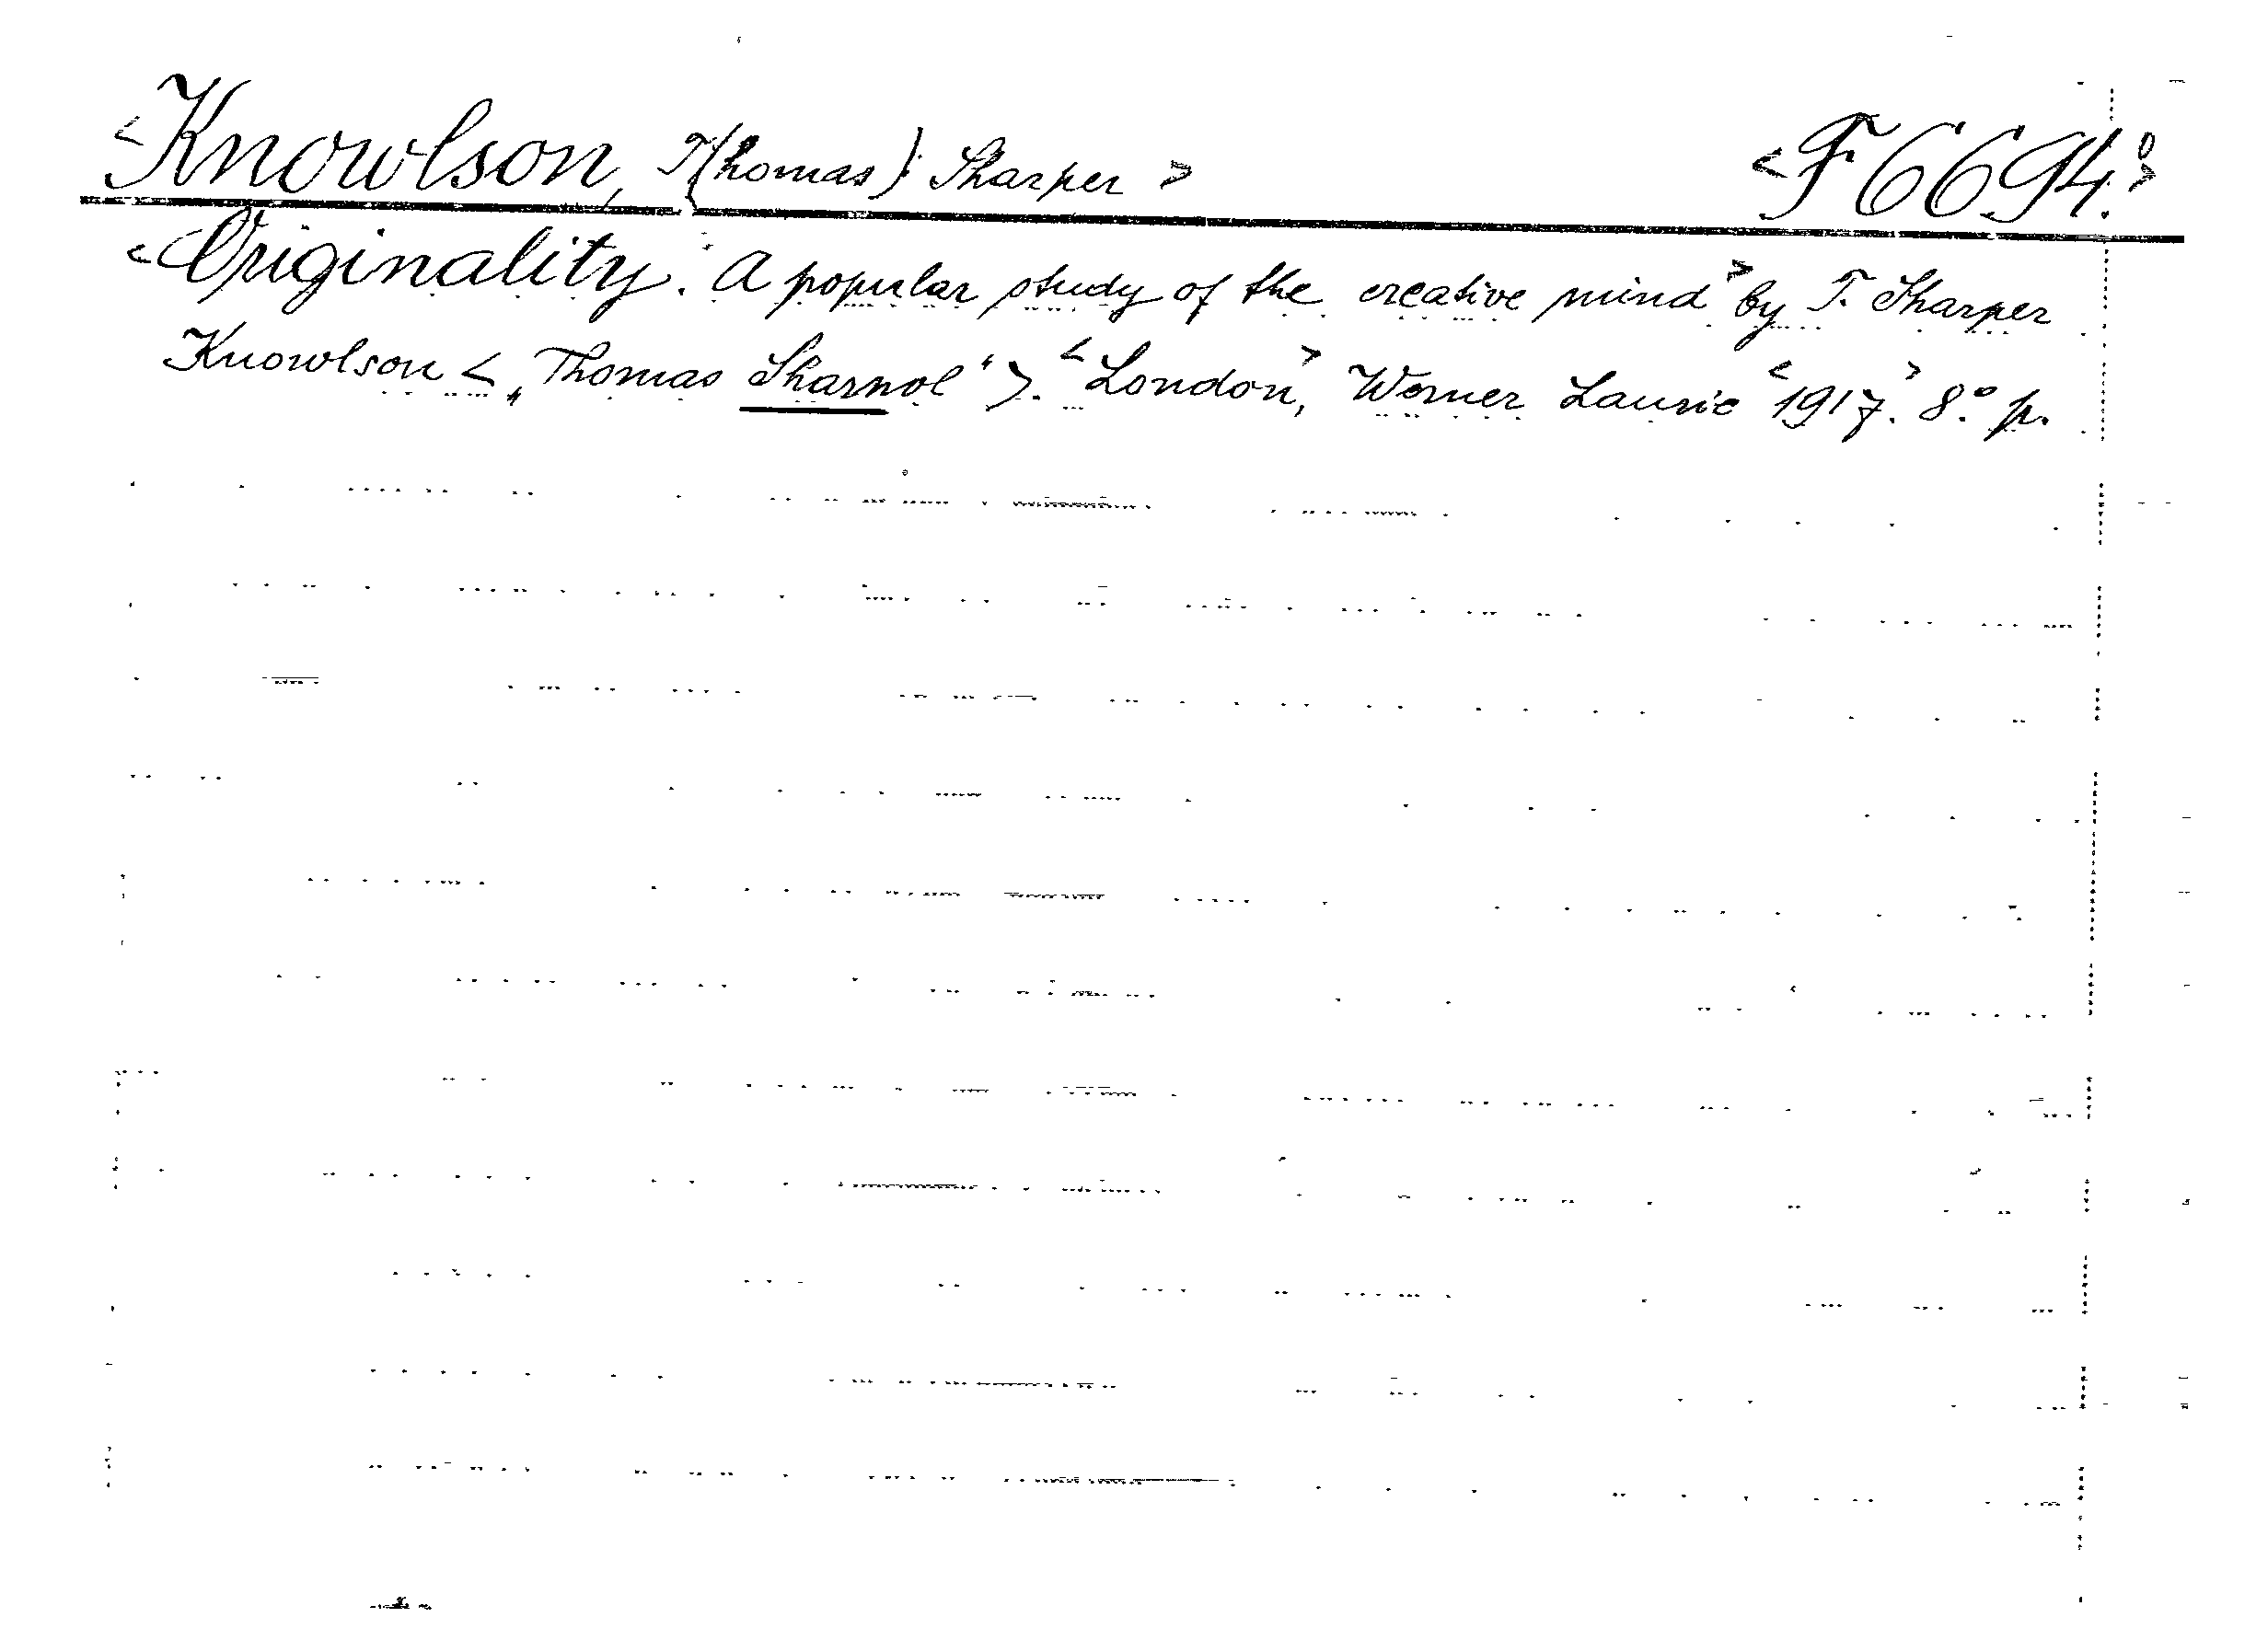 <Knowlson, T(homas): Sharper> <F 6694.0>
<Originality: A popular study of the creative mind> by T. Sharper
Knowlson < „Thomas Sharnol“ >. <London>, Werner Laurie <1917>. 8.° p.